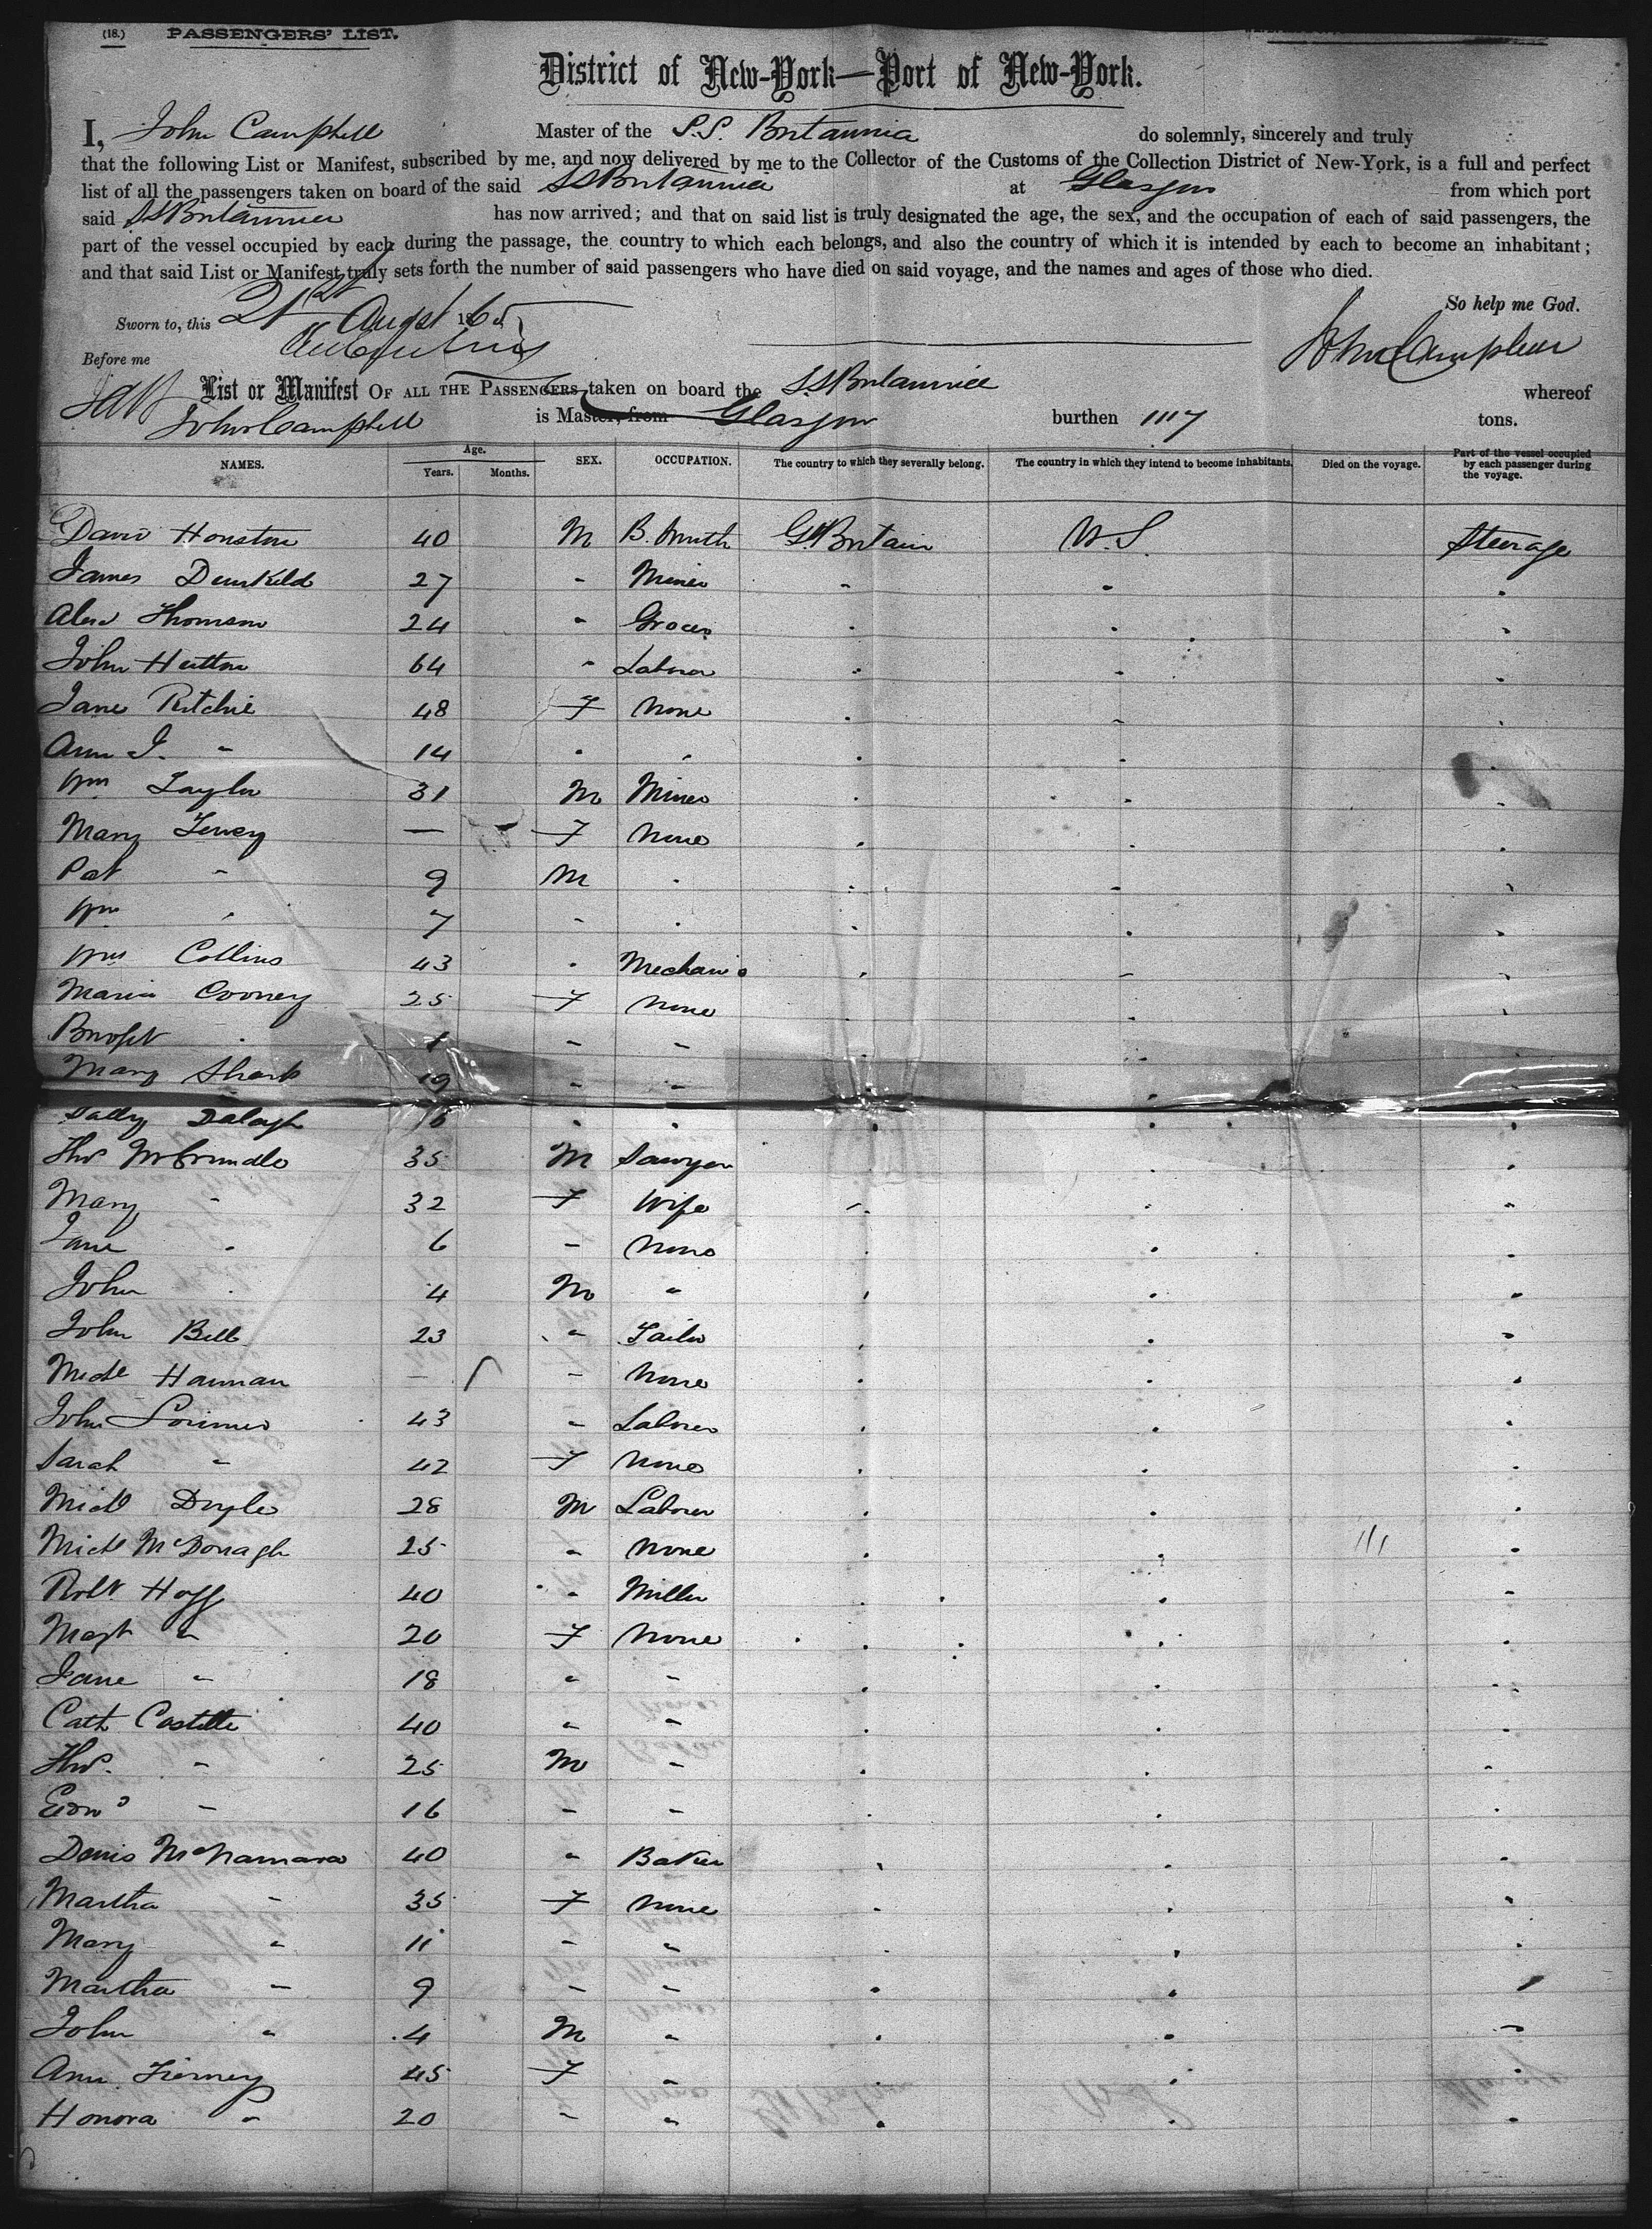 (18.) PASSENGERS' LIST.
District of New-York—Port of New-York.
I, John Campbell Master of the S.S. Britannia do solemnly, sincerely and truly
that the following List or Manifest, subscribed by me, and now delivered by me to the Collector of the Customs of the Collection District of New-York, is a full and perfect
list of all the passengers taken on board of the said SS Britannia at Glasgow from which port
said SS Britannia has now arrived; and that on said list is truly designated the age, the sex, and the occupation of each of said passengers, the
part of the vessel occupied by each during the passage, the country to which each belongs, and also the country of which it is intended by each to become an inhabitant;
and that said List or Manifest truly sets forth the number of said passengers who have died on said voyage, and the names and ages of those who died.
So help me God.
Sworn to, this 21st August 1865
Before me
John Campbell
List or Manifest OF ALL THE PASSENGERS taken on board the SS Britannia whereof
John Campbell is Master, from Glasgow burthen 1117 tons.
NAMES. Age. Years. Months. SEX. OCCUPATION. The country to which they severally belong. The country in which they intend to become inhabitants. Died on the voyage. Part of the vessel occupied by each passenger during the voyage.
David Houston 40 M B. Smith Gt Britain U.S. Steerage
James Dunkeld 27 " Miner " " "
Alexr Thomson 24 " Grocer " " "
John Hutton 64 " Labour " " "
Jane Ritchie 48 F None " " "
Ann J. " 14 " " " " "
Wm Taylor 31 M Miner " " "
Mary — F None " " "
Pat " 9 M " " " "
Wm " 7 " " " " "
Wm Collins 43 " Mechanic " " "
Maria Cooney 25 F None " " "
" 1 " " " " "
Mary Sharp 19 " " " " "
Sally " " " " "
Thos McCrindle 35 M Sawyer " " "
Mary " 32 F Wife " " "
Jane " 6 " None " " "
John " 4 M " " " "
John Bell 23 " Tailor " " "
Michl Hannan — " None " " "
John Lorimer 43 " Laborer " " "
Sarah " 42 F None " " "
Michl Doyle 28 M Laborer " " "
Michl McDonagh 25 " None " " "
Robt. Hogg 40 " Miller " " "
Magt " 20 F None " " "
Jane " 18 " " " " "
Cath Costello 40 " " " " "
Thos. " 25 M " " " "
Edwd " 16 " " " " "
Denis McNamara 40 " Baker " " "
Martha " 35 F None " " "
Mary " 11 " " " " "
Martha " 9 " " " " "
John " 4 M " " " "
Ann Tierney 45 F " " " "
Honora " 20 " " " " "